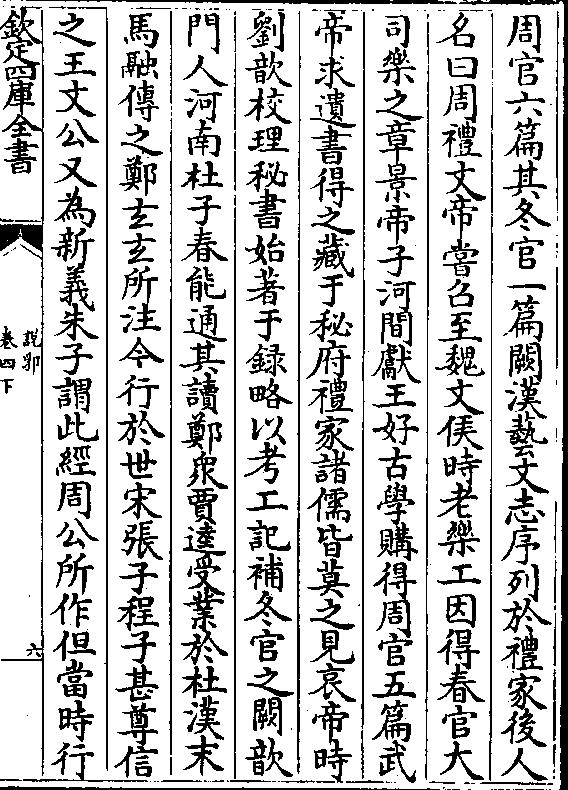 周官六篇其冬官一篇闕漢藝文志序列於禮家後人
名曰周禮文帝嘗召至魏文侯時老樂工因得春官大
司樂之章景帝子河間獻王好古學購得周官五篇武
帝求遺書得之藏于秘府禮家諸儒皆莫之見哀帝時
劉歆校理秘書始著于録略以考工記補冬官之闕歆
門人河南杜子春能通其讀鄭衆賈逵受業於杜漢末
馬融傳之鄭玄玄所注今行於世宋張子程子甚尊信
之王文公又為新義朱子謂此經周公所作但當時行
欽定四庫全書
說郛
卷四下
六